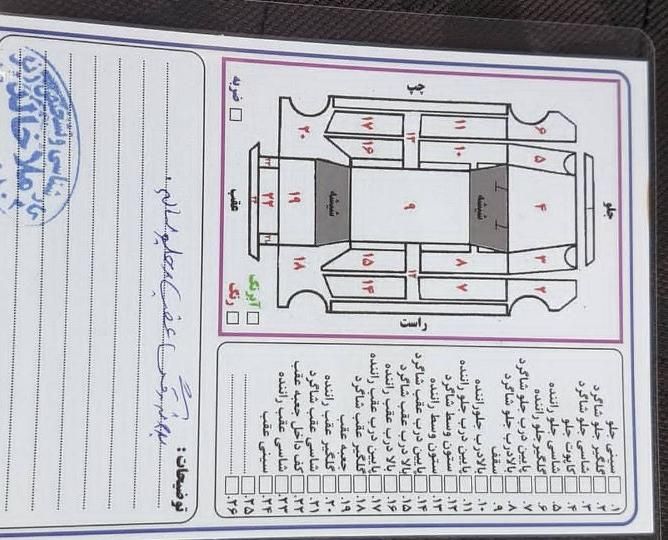 چپ
ضربه
جلو
عقب
راست
آبرنگ
رنگ
شیشه
شیشه
۶
۵
۴
۳
۲
۱۱
۱۰
۹
۸
۷
۱۳
۱۲
۱۷
۱۶
۱۵
۱۴
۲۰
۱۹
۱۸
۲۲
۱. سینی جلو
۲. گلگیر جلو شاگرد
۳. شاسی جلو شاگرد
۴. کاپوت جلو
۵. شاسی جلو راننده
۶. گلگیر جلو راننده
۷. پایین درب جلو شاگرد
۸. بالا درب جلو شاگرد
۹. سقف
۱۰. بالا درب جلو راننده
۱۱. پایین درب جلو راننده
۱۲. ستون وسط شاگرد
۱۳. ستون وسط راننده
۱۴. پایین درب عقب شاگرد
۱۵. بالا درب عقب شاگرد
۱۶. بالا درب عقب راننده
۱۷. پایین درب عقب راننده
۱۸. گلگیر عقب شاگرد
۱۹. جعبه عقب
۲۰. گلگیر عقب راننده
۲۱. شاسی عقب شاگرد
۲۲. کف داخل جعبه عقب
۲۳. شاسی عقب راننده
۲۴. سینی عقب
۲۵.
۲۶.
توضیحات :